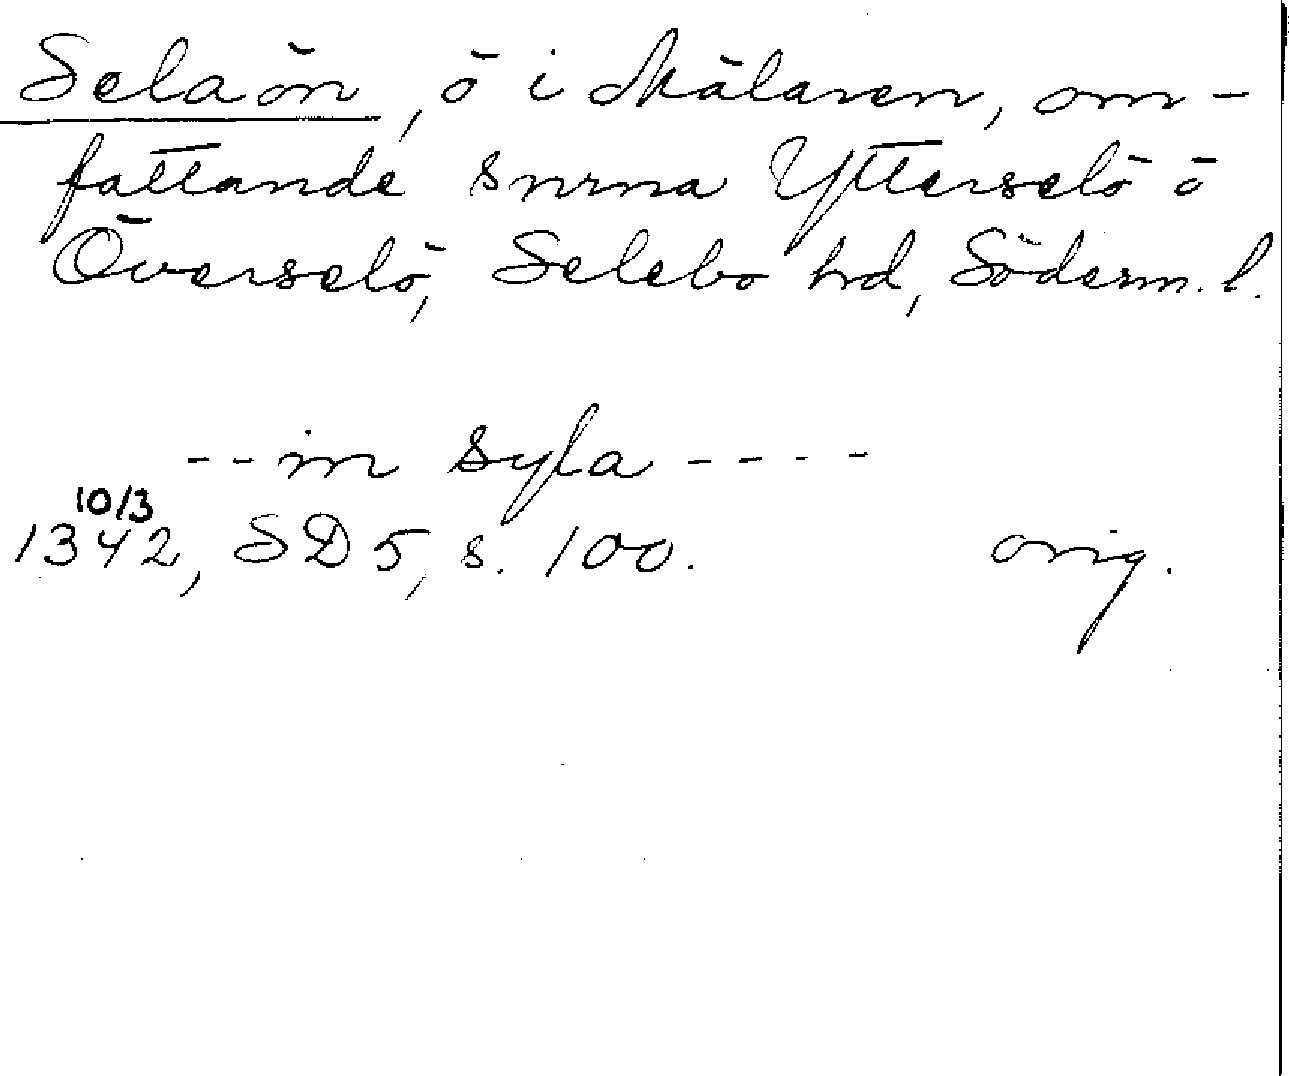 Selaön, ö i Mälaren, om-
fattande snrna Ytterselö o
Överselö, Selebo hd, Söderm. l.
-- in syla ----
10/3
1342, SD 5, s. 100. orig.